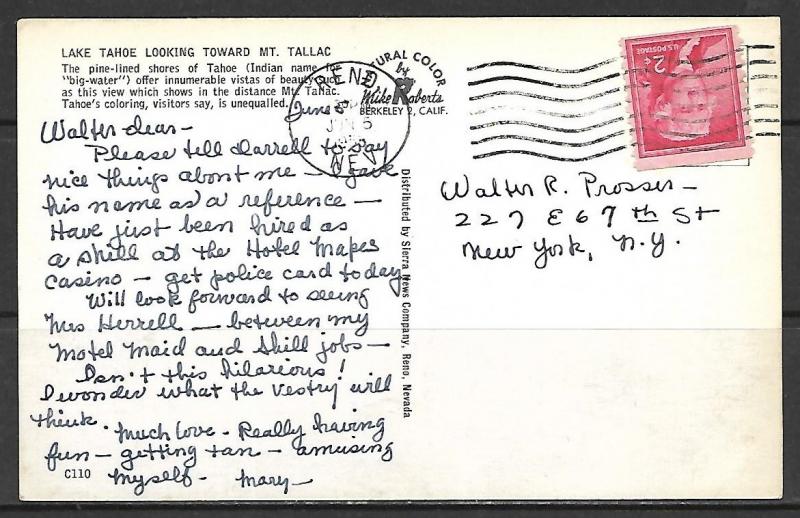 LAKE TAHOE LOOKING TOWARD MT. TALLAC
The pine-lined shores of Tahoe (Indian name for
"big-water") offer innumerable vistas of beauty such
as this view which shows in the distance Mt. Tallac.
Tahoe's coloring, visitors say, is unequalled.
NATURAL COLOR
by
Mike Roberts
BERKELEY 2, CALIF.
RENO
JUN 5
NEV
U.S. POSTAGE
2¢
June 5
Walter dear -
Please tell Darrell to say
nice things about me - I gave
his name as a reference -
Have just been hired as
a shill at the Hotel Mapes
Casino - get police card today
Will look forward to seeing
Mrs Herrell - between my
Motel Maid and Shill jobs -
Isn't this hilarious!
I wonder what the vestry will
think. Much love - Really having
fun - getting tan - amusing
myself - Mary -
C110
Distributed by Sierra News Company, Reno, Nevada
Walter R. Prosser -
227 E 67th St
New York, N.Y.